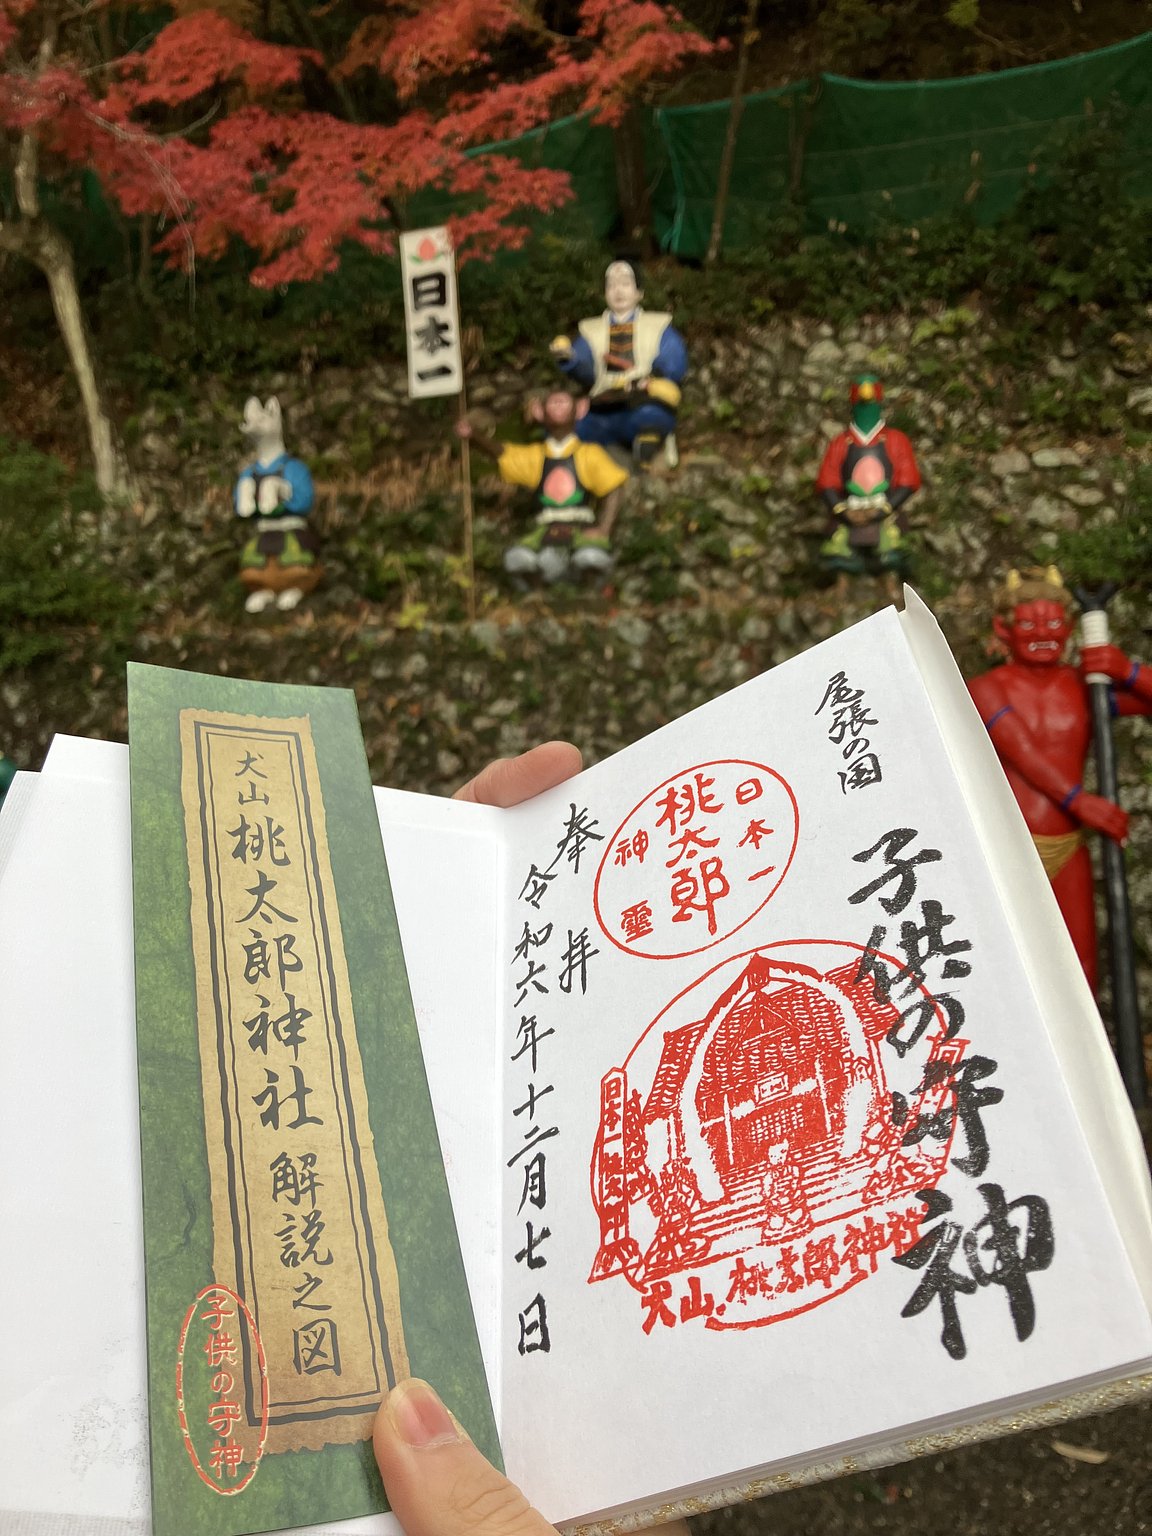 日本一
犬山桃太郎神社解説之図
子供の守神
尾張の国
子供の守神
日本一
桃太郎
神霊
犬山桃太郎神社
奉拝
令和六年十二月七日